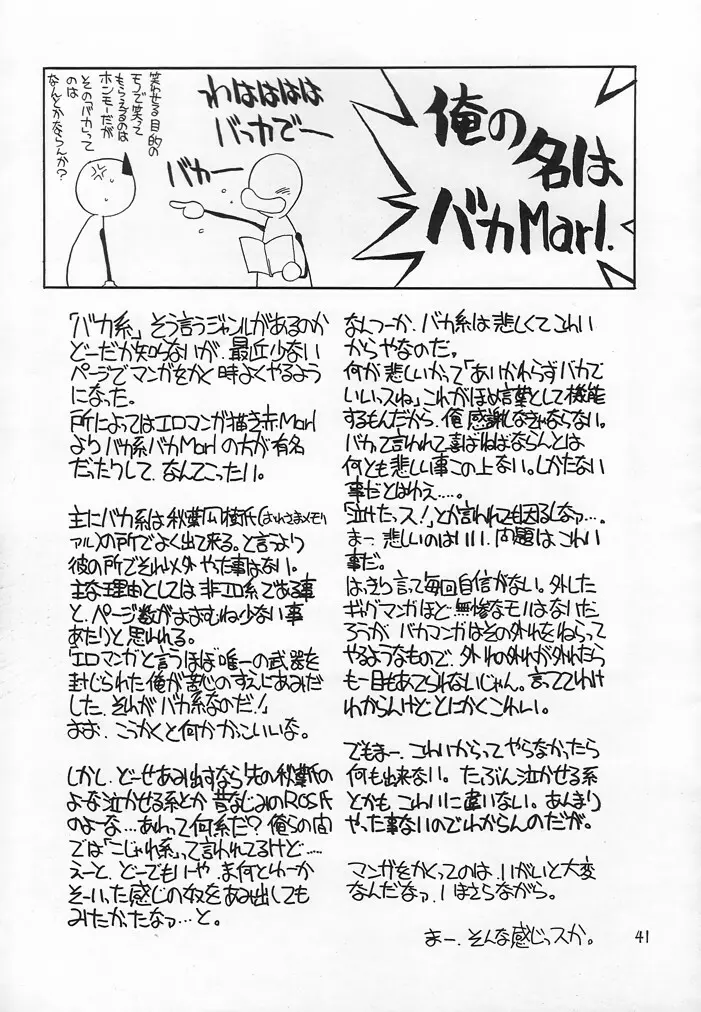 俺の
名は
バカMarl.
わはははは
バッカでー
バカー
笑わせる目的の
モノで笑って
もらえるのは
ホンモーだが
その「バカ」って
のは
なんとかならんか?
「バカ系」そう言うジャンルがあるのか
どーだか知らないが、最近少ない
ページでマンガをかく時よくやるよう
になった。
所によってはエロマンガ描き赤Marl
よりバカ系バカMarlの方が有名
だったりして、なんてこったい。
主にバカ系は秋葉凪樹氏(おれさまメモリ
アル)の所でよく出て来る。と言うより
彼の所でそれ以外やった事はない。
主な理由としては非エロ系である事
と、ページ数がおおむね少ない事
あたりと思われる。
「エロマンガと言うほぼ唯一の武器を
封じられた俺が苦心のすえにあみだ
した、それがバカ系なのだ!」
おお、こうかくと何かかっこいいな。
しかし、どーせあみ出すなら先の秋葉氏の
よーな泣かせる系とか昔なじみのROS氏
のよーな…あれって何系だ?俺らの間
では「こじゃれ系」って言われてるけど……
えーと、どーでもいいや、ま何とゆーか
そーいった感じの奴をあみ出しても
みたかったなァ…と。
なんつーか、バカ系は悲しくてこわい
からやなのだ。
何が悲しいかって「あいかわらずバカで
いいっスね」これがほめ言葉として機能
するもんだから、俺感謝しなきゃならない。
バカって言われて喜ばねばならんとは
何とも悲しい事この上ない。しかたない
事だとはいえ……。
「泣けたっス!」とか言われても困るしなァ…。
まー、悲しいのはいい、問題はこわい
事だ。
はっきり言って毎回自信がない。外した
ギャグマンガほど無惨なモノはないだ
ろうが、バカマンガはその外れをねらって
やるようなもので、外れの外れが外れたら
も一目もあてられないじゃん。言っててわけ
わからんけどとにかくこわい。
でもまー、こわいからってやらなかったら
何も出来ない。たぶん泣かせる系
とかも、こわいに違いない。あんまり
やった事ないのでわからんのだが。
マンガをかくってのは、いがいと大変
なんだなァ、いまさらながら。
まー、そんな感じっスか。
41